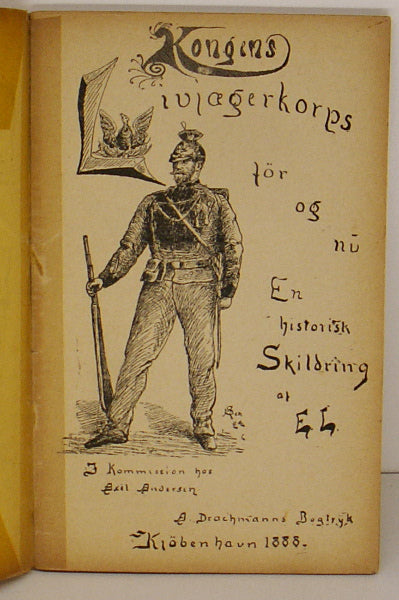 Kongens
Livjægerkorps
för
og
nū
En
historisk
Skildring
af
E L.
I Kommission hos
Axel Andersen
A. Drachmanns Bogtryk
Kjöbenhavn 1888.